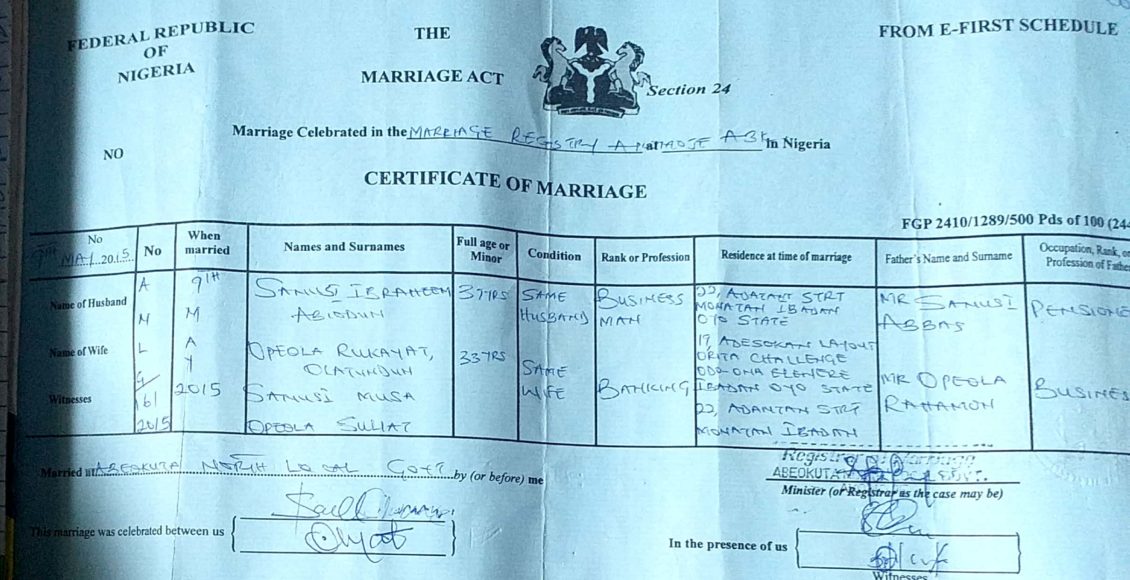 FEDERAL REPUBLIC
OF
NIGERIA
THE
MARRIAGE ACT
FROM E-FIRST SCHEDULE
Section 24
Marriage Celebrated in the MARRIAGE REGISTRY at in Nigeria
NO
CERTIFICATE OF MARRIAGE
FGP 2410/1289/500 Pds of 100 (244
No
9TH MAY 2015
No
When
married
Names and Surnames
Full age or
Minor
Condition
Rank or Profession
Residence at time of marriage
Father's Name and Surname
Occupation, Rank, or
Profession of Father
Name of Husband
A
N
9TH
M
SANUSI IBRAHEEM
ABIODUN
37YRS
SAME
HUSBAND
BUSINESS
MAN
22, STRT
MONATAN IBADAN
OYO STATE
MR SANUSI
ABBAS
PENSIONE
Name of Wife
L
A
Y
OPEOLA RUKAYAT,
OLATUNDUN
33YRS
SAME
WIFE
BANKING
17, ADESOKAN LAYOUT
ORITA CHALLENGE
ODO-ONA ELEWERE
IBADAN OYO STATE
MR OPEOLA
RAHAMON
BUSINES
Witnesses
9/
161
2015
2015
SANUSI MUSA
OPEOLA SULIAT
22, STRT
MONATAN IBADAN
Married at ABEOKUTA NORTH LOCAL GOVT by (or before) me
Registrar of Marriage
ABEOKUTA
Minister (or Registrar as the case may be)
This marriage was celebrated between us
In the presence of us
Witnesses